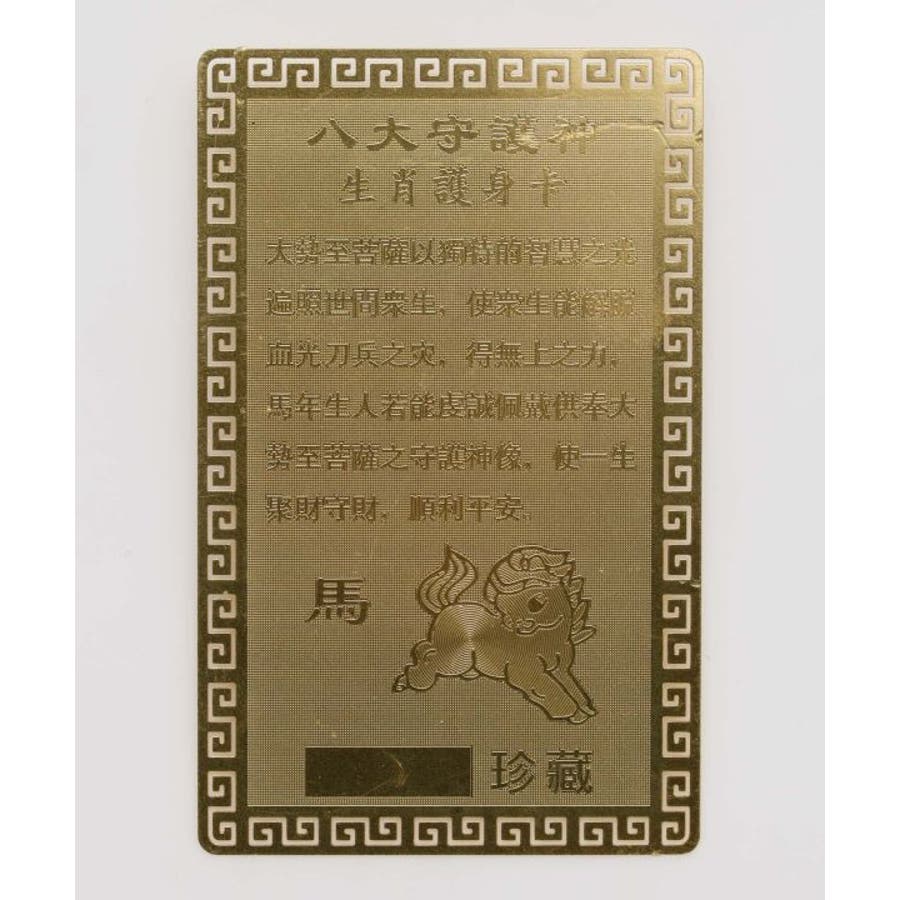 八大守護神
生肖護身卡
大勢至菩薩以獨特的智慧之光
遍照世間衆生，使衆生能解脫
血光刀兵之灾，得無上之力，
馬年生人若能虔誠佩戴供奉大
勢至菩薩之守護神像，使一生
聚財守財，順利平安。
馬
珍藏